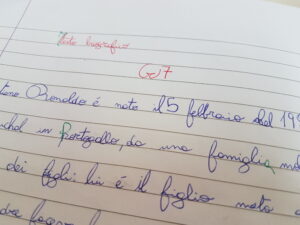 Testo biografico
CR7
tiano Ronaldo è nato il 5 febbraio del 19
nchal in Portogallo, da una famiglia
dei figli: lui è il figlio nato